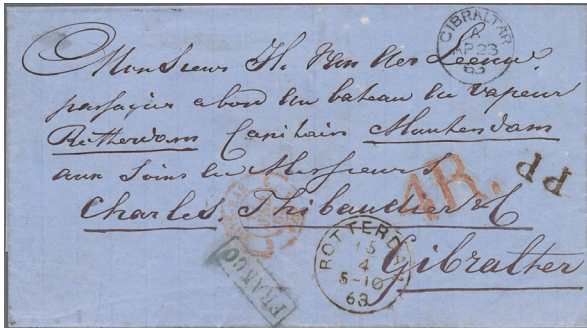 GIBRALTAR
A
AP 23
63
Monsieur H. Van der Leeuw
passagier abord du bateau la vapeur
Rotterdam Capitain Mantendam
aux soins de Messieurs
Charles Thibaudier & C
Gibralter
4R.
PP
FRANCO
ROTTERD
15
4
5-10
63